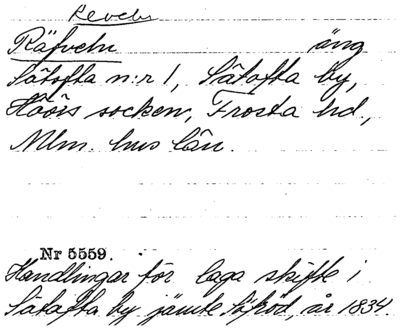 Reveln
Räfveln äng
Sätofta n:r 1, Sätofta by,
Höörs socken, Frosta hd,
Mlm. hus län.
Nr 5559.
Handlingar för laga skifte i
Sätofta by jämte år 1834.